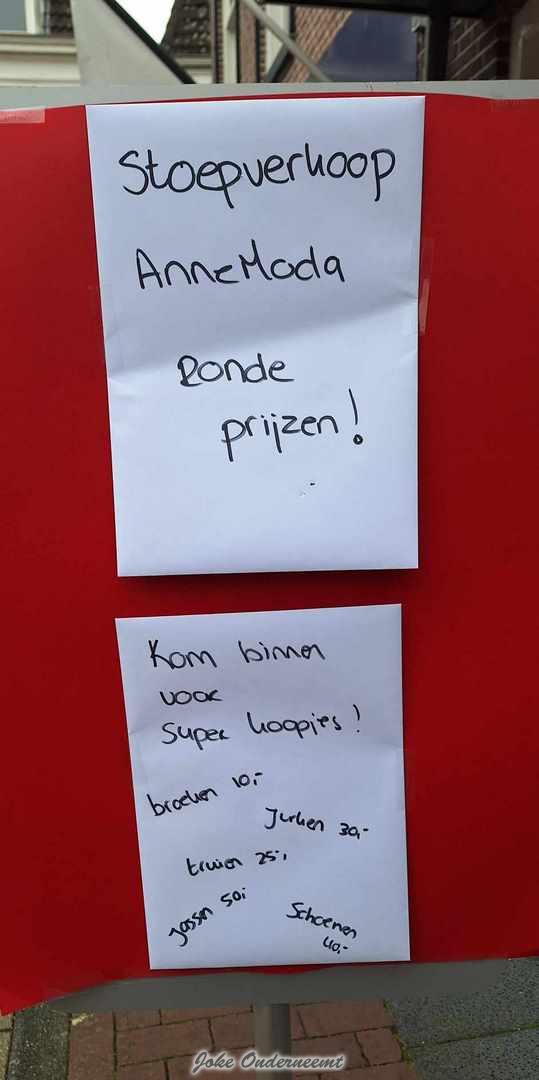 Stoepverkoop
AnneModa
Ronde
prijzen!
Kom binnen
voor
Super koopjes!
broeken 10,-
Jurken 30,-
truien 25,-
Jassen 50,-
Schoenen
40,-
Joke Onderneemt